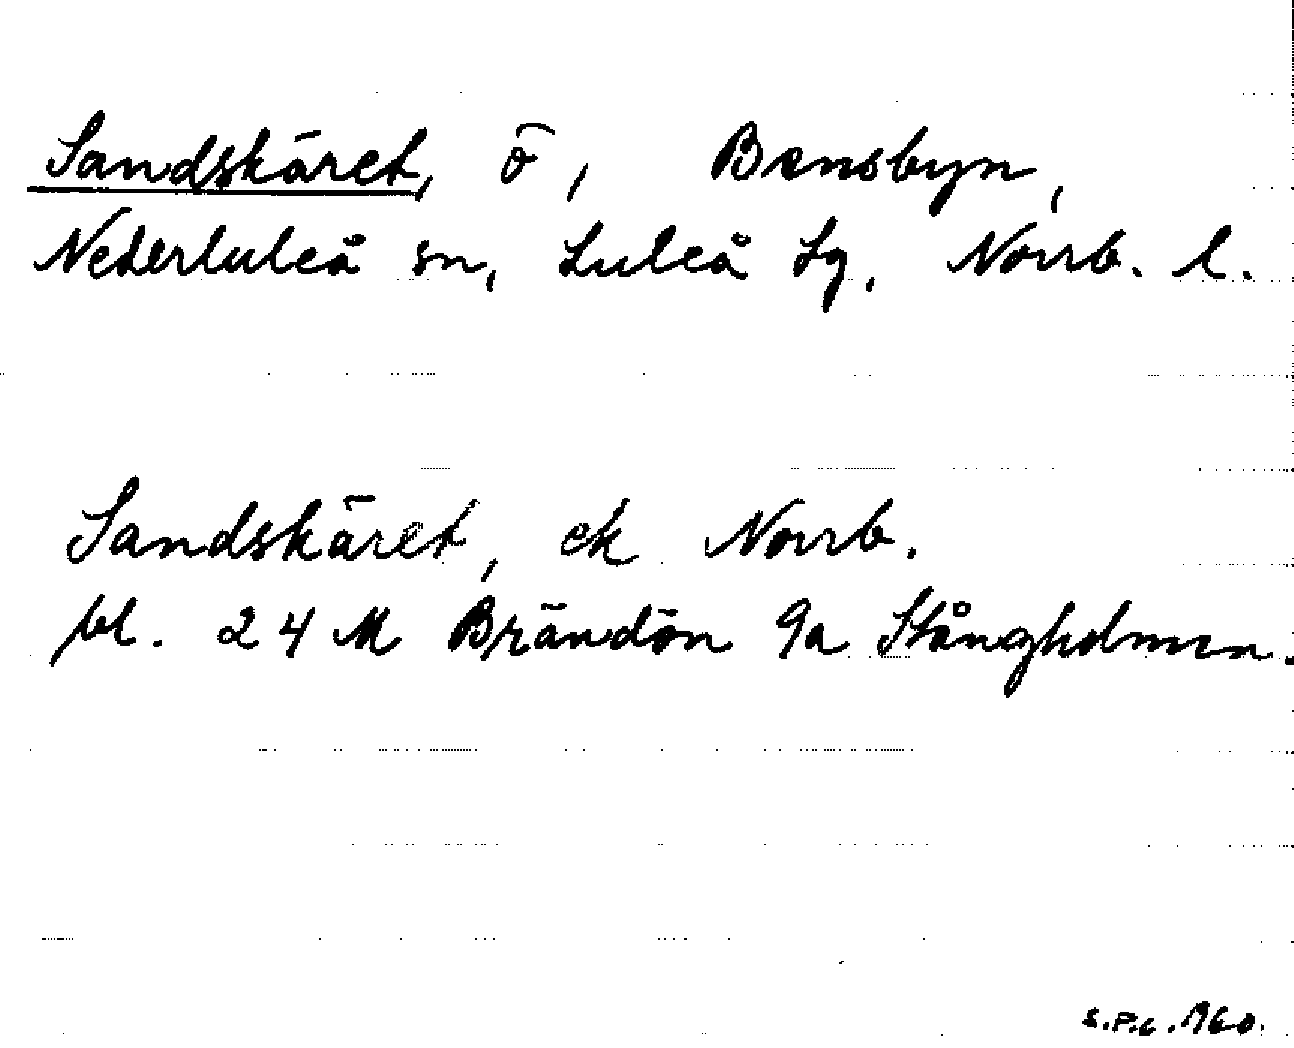 Sandskäret, ö, Bensbyn,
Nederluleå sn, Luleå tg, Norrb. l.
Sandskäret, ek Norrb.
bl. 24 M Brändön 9a Stångholmen.
S.P.G. 1960.